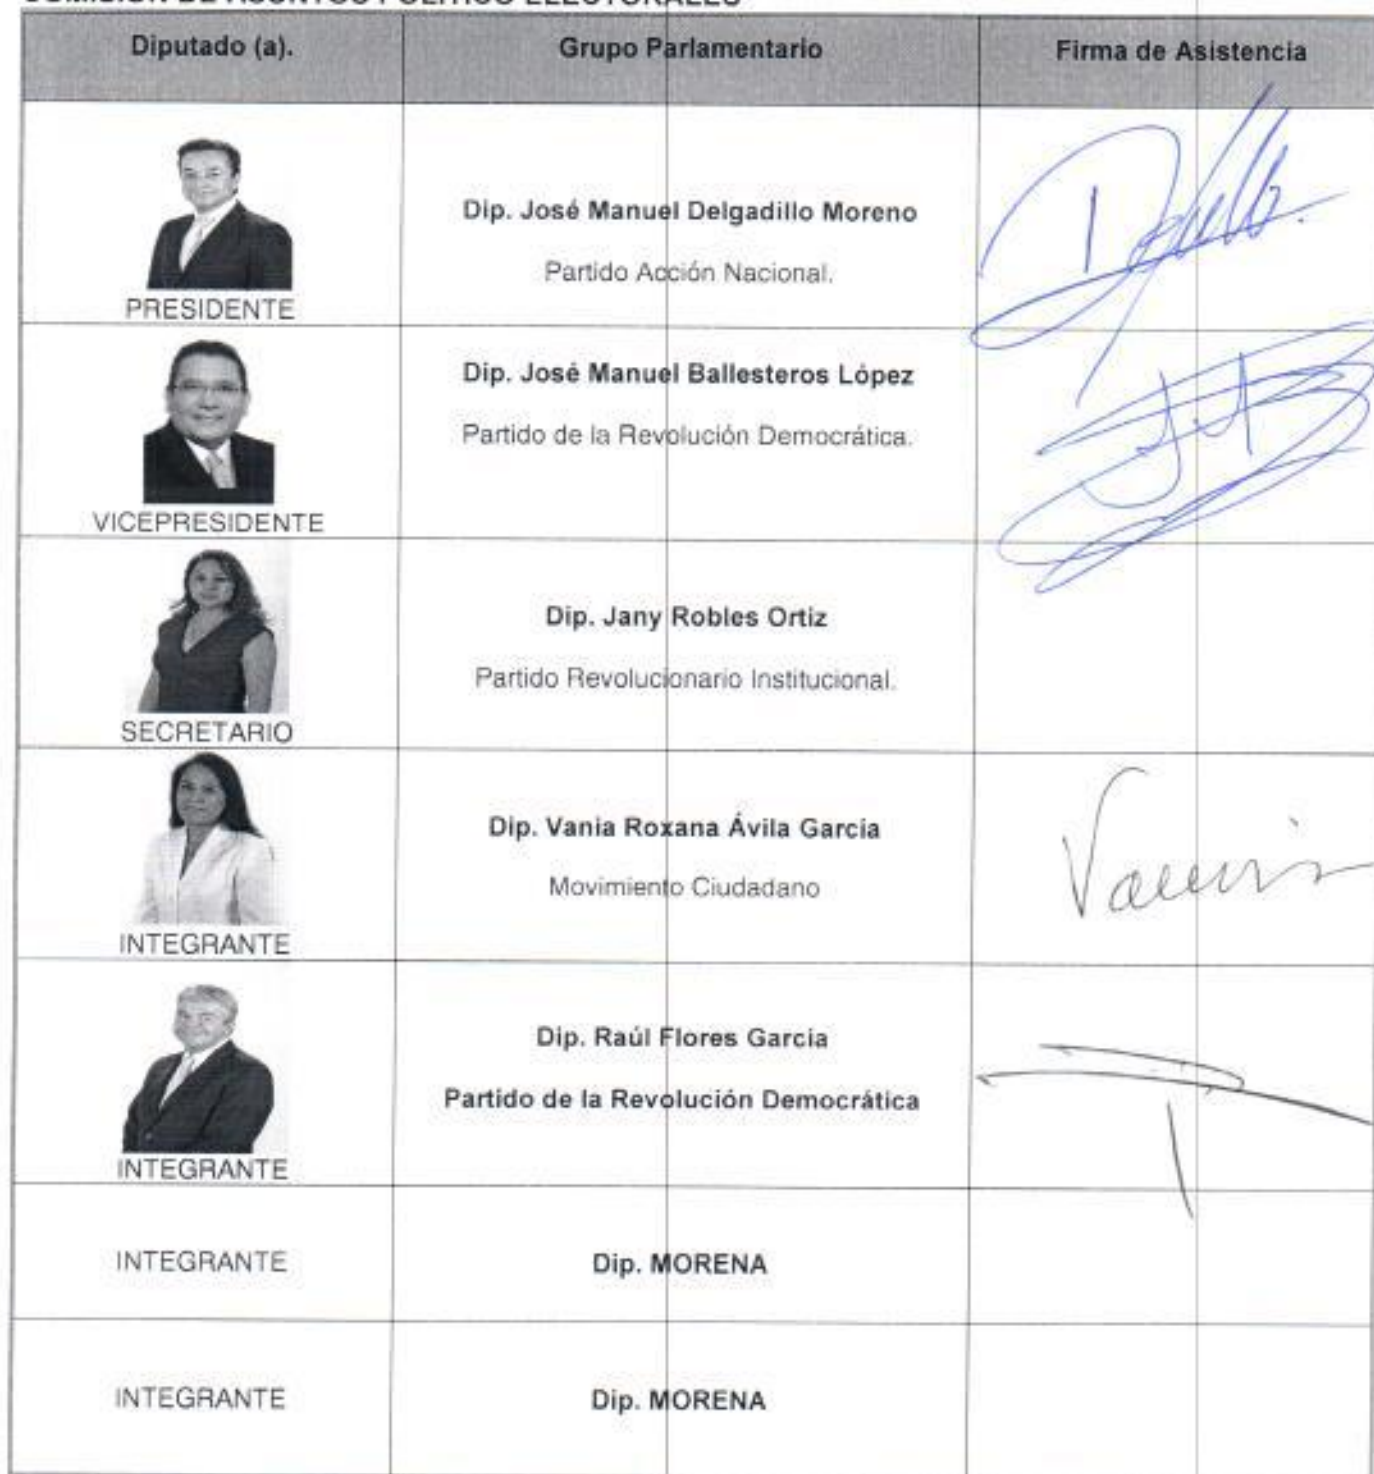 COMISIÓN DE ASUNTOS POLÍTICO ELECTORALES
Diputado (a). Grupo Parlamentario Firma de Asistencia
Dip. José Manuel Delgadillo Moreno
Partido Acción Nacional.
PRESIDENTE
Dip. José Manuel Ballesteros López
Partido de la Revolución Democrática.
VICEPRESIDENTE
Dip. Jany Robles Ortiz
Partido Revolucionario Institucional.
SECRETARIO
Dip. Vania Roxana Ávila García
Movimiento Ciudadano
Vania
INTEGRANTE
Dip. Raúl Flores García
Partido de la Revolución Democrática
INTEGRANTE
INTEGRANTE Dip. MORENA
INTEGRANTE Dip. MORENA